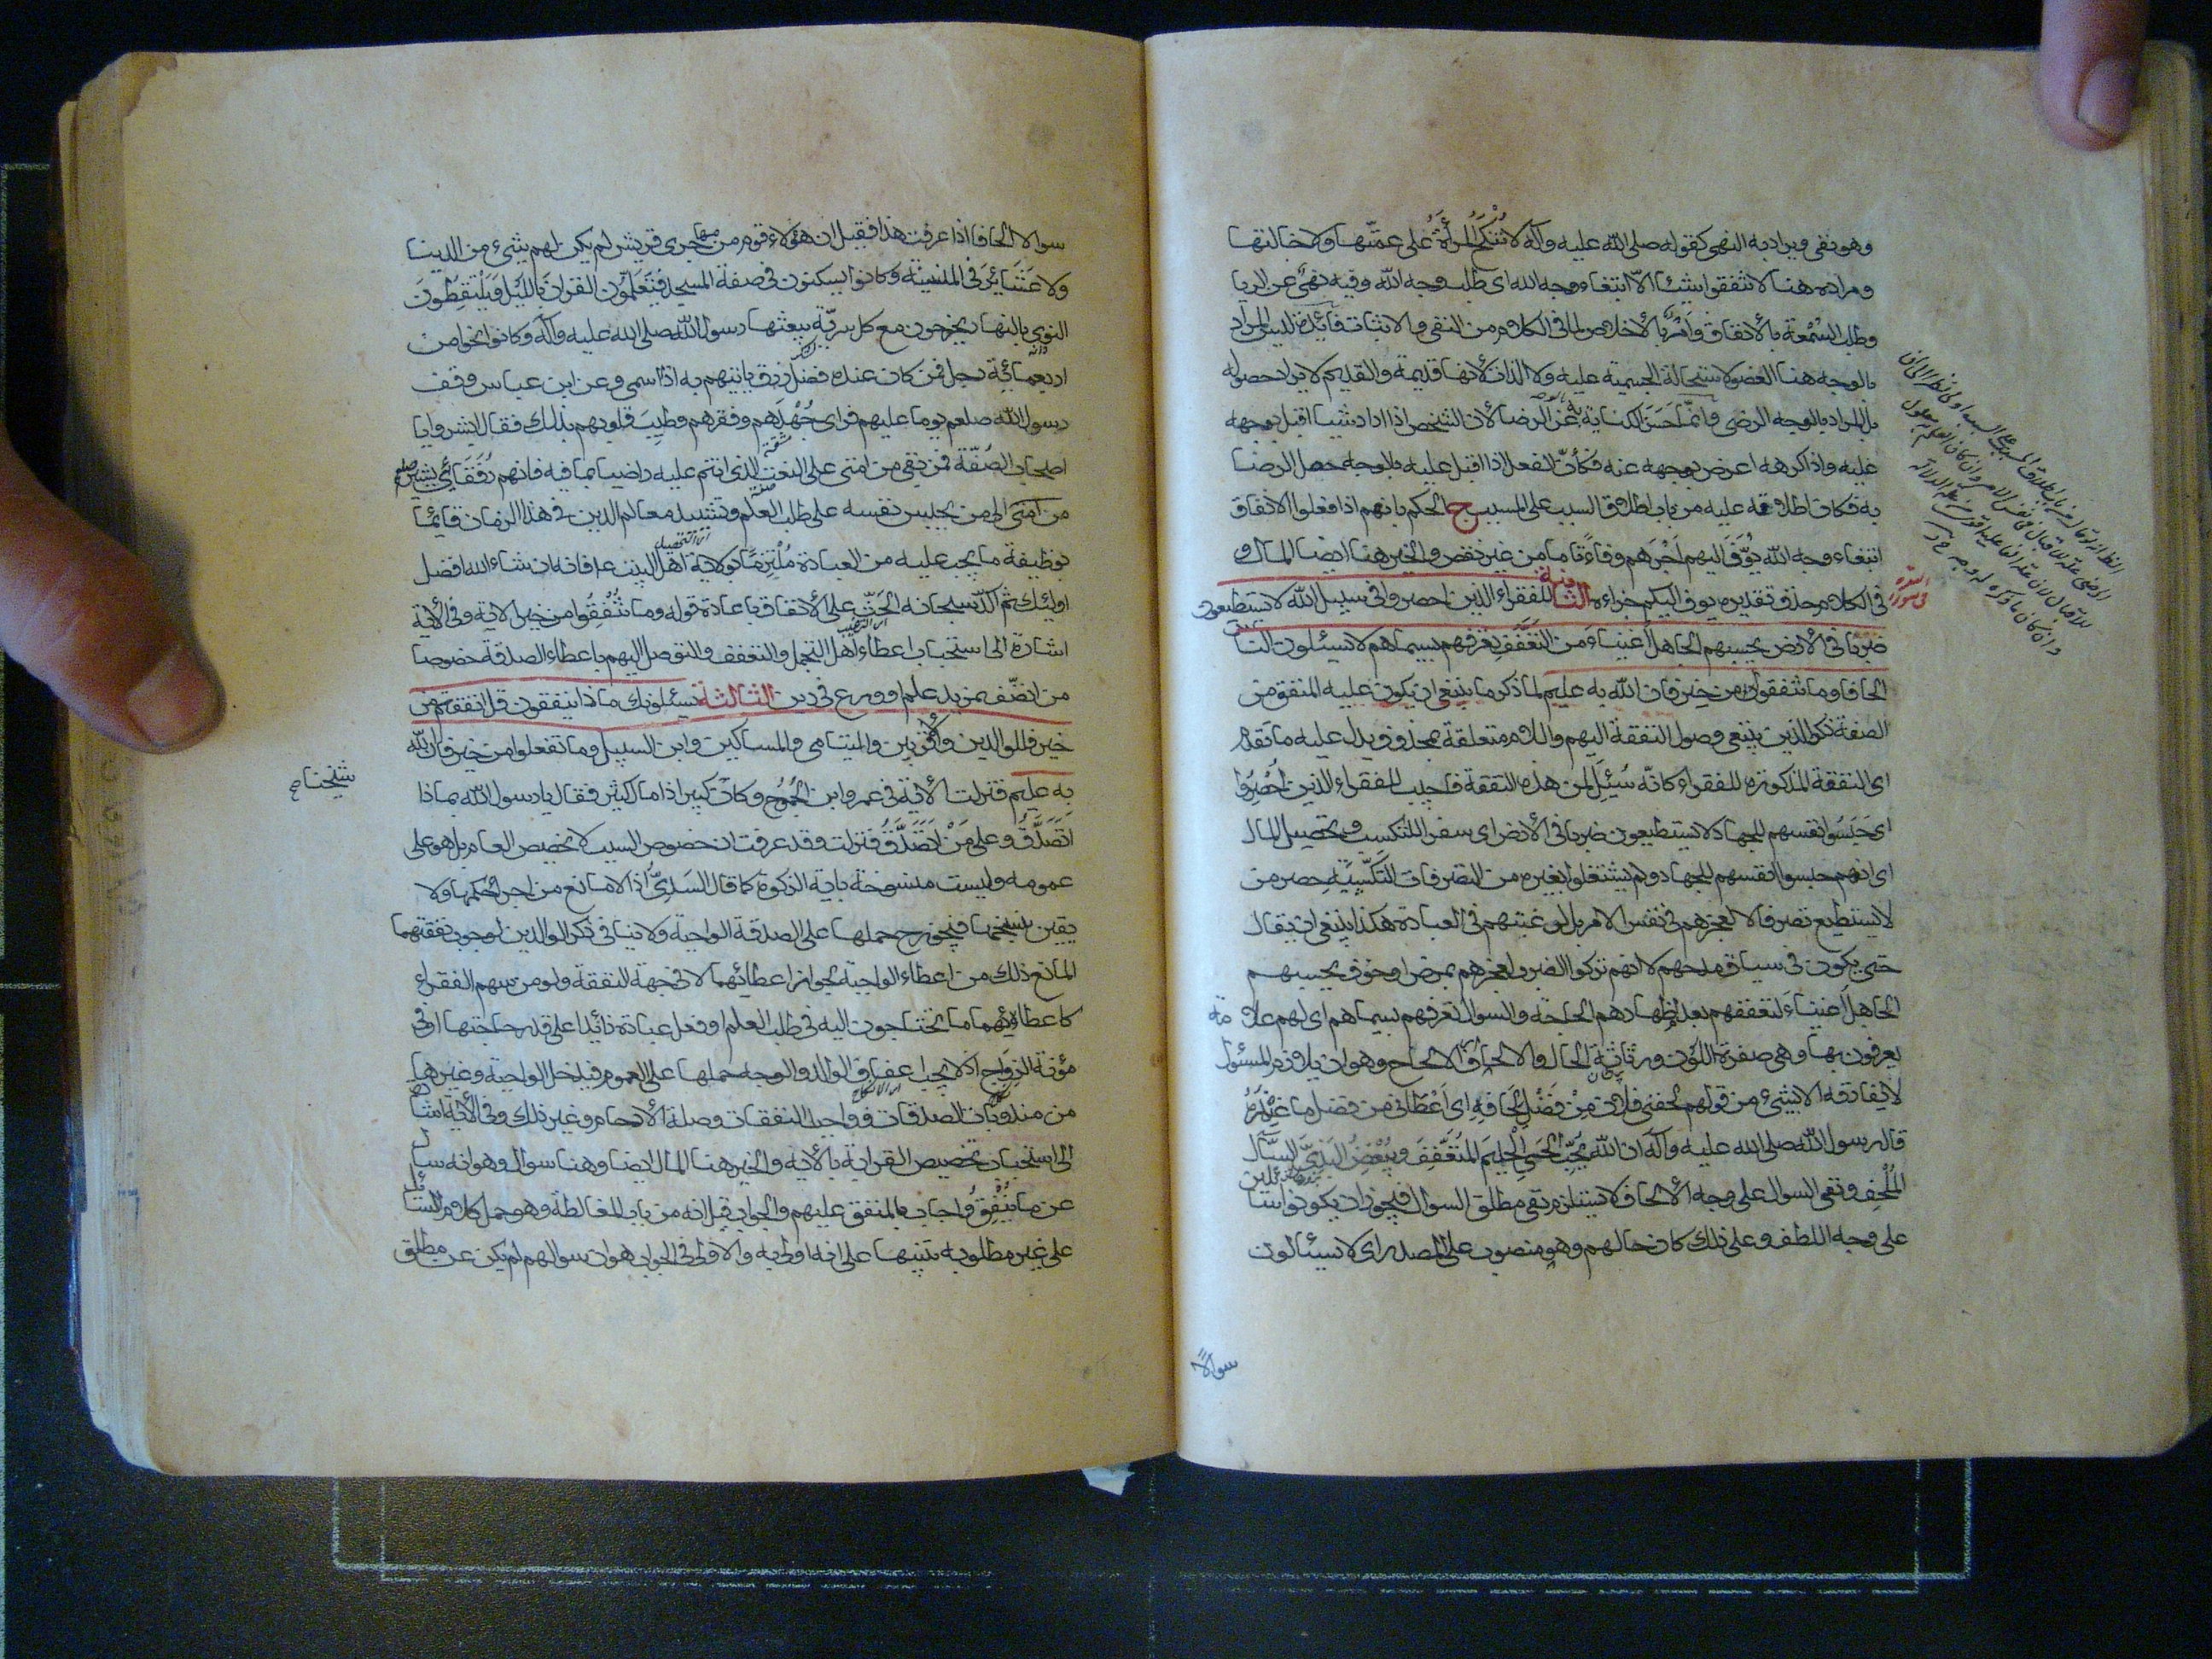 وهو نفى ويراد به النهى كقوله صلى الله عليه وآله لا تُنْكَحُ المرأَةُ على عمّتها ولا خالتها
ومراده هنا لا تنفقوا شيئا الّا ابتغاء وجه الله اى طلب وجه الله وفيه نهىٌ عن الريا
وطلب السُمْعة بالانفاق وامرٌ بالاخلاص لما فى الكلام من النفى والاثبات فائدة ليس المراد
بالوجه هنا العضو لاستحالة الجسمية عليه ولا الذات لأنها قديمة والقديم لا يراد حصوله
بل المراد بالوجه الرضى وانّما حَسَنَ الكناية به عن الرضا لأن الشخص اذا اراد شيئا اقبل بوجهه
عليه واذا كرهه اعرض بوجهه عنه فكأنّ الفعل اذا اقبل عليه بالوجه حصل الرضا
به فكان اطلاقه عليه من باب اطلاق السبب على المسبب ج الحكم بانهم اذا فعلوا الانفاق
ابتغاء وجه الله يُوَفَّ اليهم اَجْرهم وفاءً تاما من غير نقص والخير هنا ايضا المال و
فى الكلام حذف تقديره يوف اليكم جزاءه الثانية للفقراء الذين احصروا فى سبيل الله لا يستطيعون
فى سورة البقرة
ضربًا فى الأرض يحسبهم الجاهل أغنياءَ من التعفّف تعرفهم بسيماهم لا يسئلون الناس
الحافا وما تنفقوا من خير فان الله به عليم لما ذكر ما ينبغى ان يكون عليه المنفق من
الصفة ذكر الذين ينبغى وصول النفقة اليهم واللام متعلقة بمحذوف ويدل عليه ما تقدم
اى النفقة المذكورة للفقراء كانّه سُئِلَ لمن هذه النفقة فاجيب للفقراء الذين اُحْصِرُوا
اى حَبَسُوا انفسهم للجهاد لا يستطيعون ضربا فى الأرض اى سفرا للتكسب وتحصيل المال
اى انهم حبسوا انفسهم للجهاد ولم يشتغلوا بغيره من التصرفات التكسّبيّة حصر من
لا يستطيع تصرفا لا لعجزهم فى نفس الامر بل لرغبتهم فى العبادة هكذا ينبغى ان يقال
حتى يكون فى سياق مدحهم لا انهم تركوا الضرب لعجزهم بمرض او خوف يحسبهم
الجاهل اغنياءَ لتعففهم بعد اظهارهم الحاجة والسؤال تعرفهم بسيماهم اى لهم علامة
يعرفون بها وهى صفرة اللون ورثاثة الحال والالحاف الالحاح وهو ان يلازم المسئول
لا يفارقه الا بشىء من قولهم لحفنى فلان مِنْ فَضْلِ لِحَافِهِ اى اعْطَانى من فضل ما عِنْدَهُ
قال رسول الله صلى الله عليه وآله ان الله يُحِبّ الحَىَّ الْحَلِيمَ المُتَعَفِّفَ ويُبْغِضُ البَذِىَّ السَّآل
المُلْحِف ونفى السوال على وجه الألحاف لا يستلزم نفى مطلق السوال فيجوز ان يكونوا سائلين
على وجه اللطف وعلى ذلك كان حالهم وهو منصوب على المصدر اى لا يسئالون
سوالاً
سوالا الحافا اذا عرفت هذا فقيل ان هؤلاء قوم من مهاجرى قريش لم يكن لهم شىء من الدنيا
ولا عَشَائِرَ فى المدينة وكانوا يسكنون فى صفة المسجد فيتعلّمون القرآن بالليل ويلتقطون
النوى بالنهار يخرجون مع كل سريّة يبعثها رسول الله صلى الله عليه وآله وكانوا نحوا من
اربعمائة رجل فمن كان عنده فضل رزق ياتيهم به اذا امسى وعن ابن عباس وقف
رسول الله صلعم يوما عليهم فراى جُهْدَهم وفقرهم وطِيبَ قلوبهم بذلك فقال ابشروا يا
اصحاب الصُفّة فمن بقى من امتى على النعت الذى انتم عليه راضيا بما فيه فانهم رُفَقَائى
من امتى الى من يحبس نفسه على طلب العلم وتشييد معالم الدين فى هذا الزمان قائما
بوظيفة ما يجب عليه من العبادة مُلْتَزِمًا بولاية اهل البيت ع فانه ان شاء الله افضل
اولئك ثم اكّد سبحانه الحَثّ على الأنفاق باعادة قوله وما تُنْفِقُوا من خير الاية وفى الأية
اشارة الى استحباب اعطاء اهل التجمل والتعفف والتوصل اليهم باعطاء الصدقة خصوصا
من اتصّف بمزيد علم او ورع فى دين الثالثة يسئلونك ماذا ينفقون قل ما انفقتم من
خير فللوالدين والأقربين واليتامى والمساكين وابن السبيل وما تفعلوا من خير فان الله
به عليم فنزلت الأية فى عمرو ابن الجَمُوح وكان كبيرا ذا مال كثير فقال يا رسول الله بماذا
اَتَصَدَّقُ وعلى مَنْ اَتَصَدَّقُ فنزلت وقد عرفت ان خصوص السبب لا يخصص العام بل هو على
عمومه وليست منسوخة باية الزكوة كما قال السَدِىُّ اذ لا مانع من اجراء حكمها ولا
يقين بنسخها فيجوز ح حملها على الصدقة الواجبة ولا ينافى ذكر الوالدين لوجوب نفقتهما
المانع ذلك من اعطاء الواجبة لجواز اعطائهما لا فى جهة النفقة ولو من سهم الفقراء
كاعطائهما ما يحتاجون اليه فى طلب العلم او فعل عبادة زائدا على قدر حاجتها او فى
مؤنة الزواج اذ لا يجب اعفاف الوالد والوجه حملها على العموم فيدخل الواجبة وغيرها
من مندوبات الصدقات وواجب النفقات وصلة الأرحام وغير ذلك وفى الأية اشارة
الى استحباب تخصيص القرابة بالأية والخير هنا المال ايضا وهنا سوال وهو انه سال
عن ما يُنْفِقُ فاجاب بالمنفق عليهم والجواب قيل انه من باب المغالطة وهو حمل كلام السائل
على غير مطلوبه تنبيها على انه اولى به والاولى فى الجواب هو ان سوالهم لم يكن عن مطلق